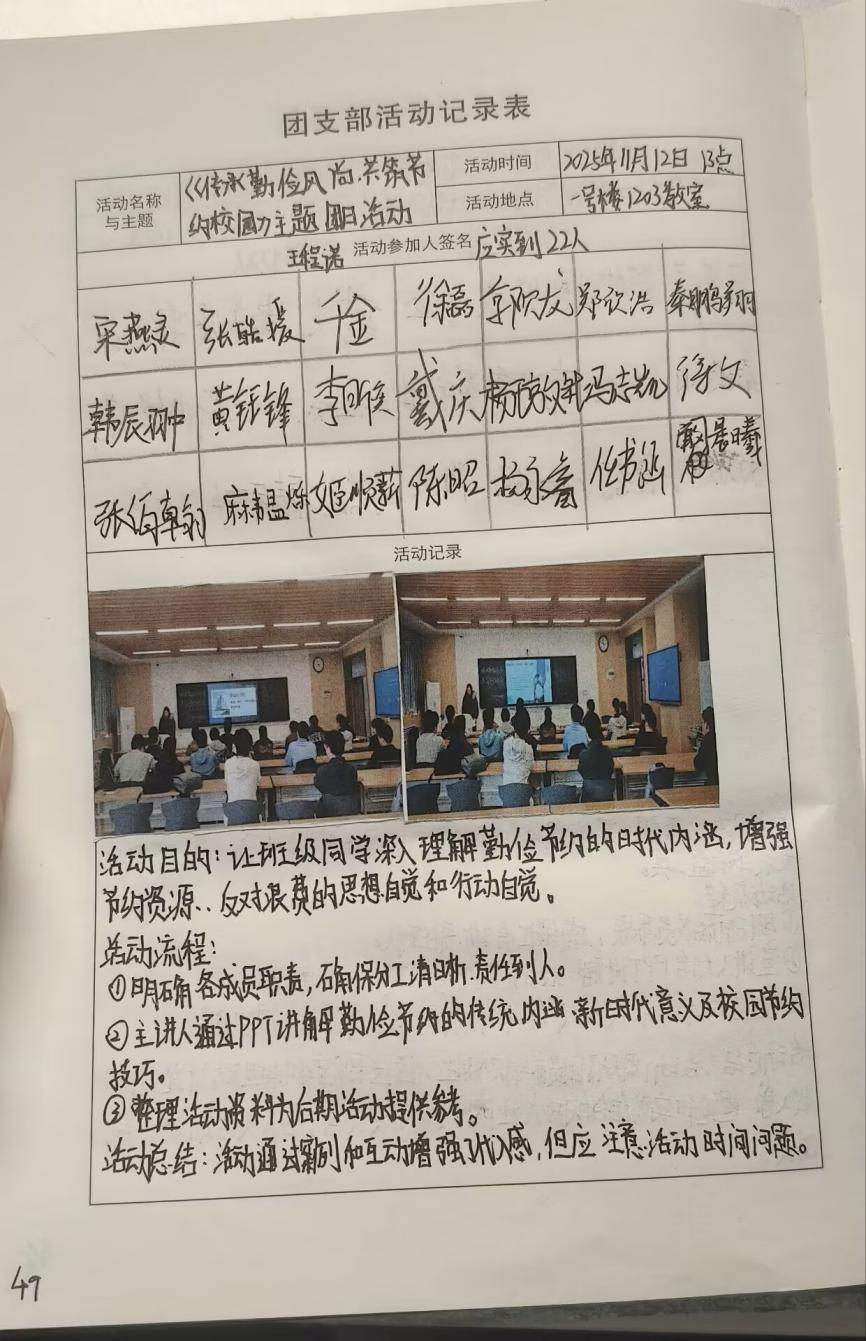 团支部活动记录表
活动名称与主题
《传承勤俭风尚.共筑节
约校园》主题团日活动
活动时间
2025年11月12日 13点
活动地点
一号楼1203教室
王程诺 活动参加人签名 应实到22人
宋燕灵 张皓媛 千金 徐磊 郑欣浩
韩辰翀 黄钰锋 戴庆 冯志凯 徐文
张伯翰 姬顺薪 陈昭 任书涵
活动记录
活动目的:让班级同学深入理解勤俭节约的时代内涵,增强
节约资源、反对浪费的思想自觉和行动自觉。
活动流程:
①明确各成员职责,确保分工清晰.责任到人。
②主讲人通过PPT讲解勤俭节约的传统内涵.新时代意义及校园节约
技巧。
③整理活动资料为后期活动提供参考。
活动总结:活动通过案例和互动增强了代入感,但应注意活动时间问题。
49